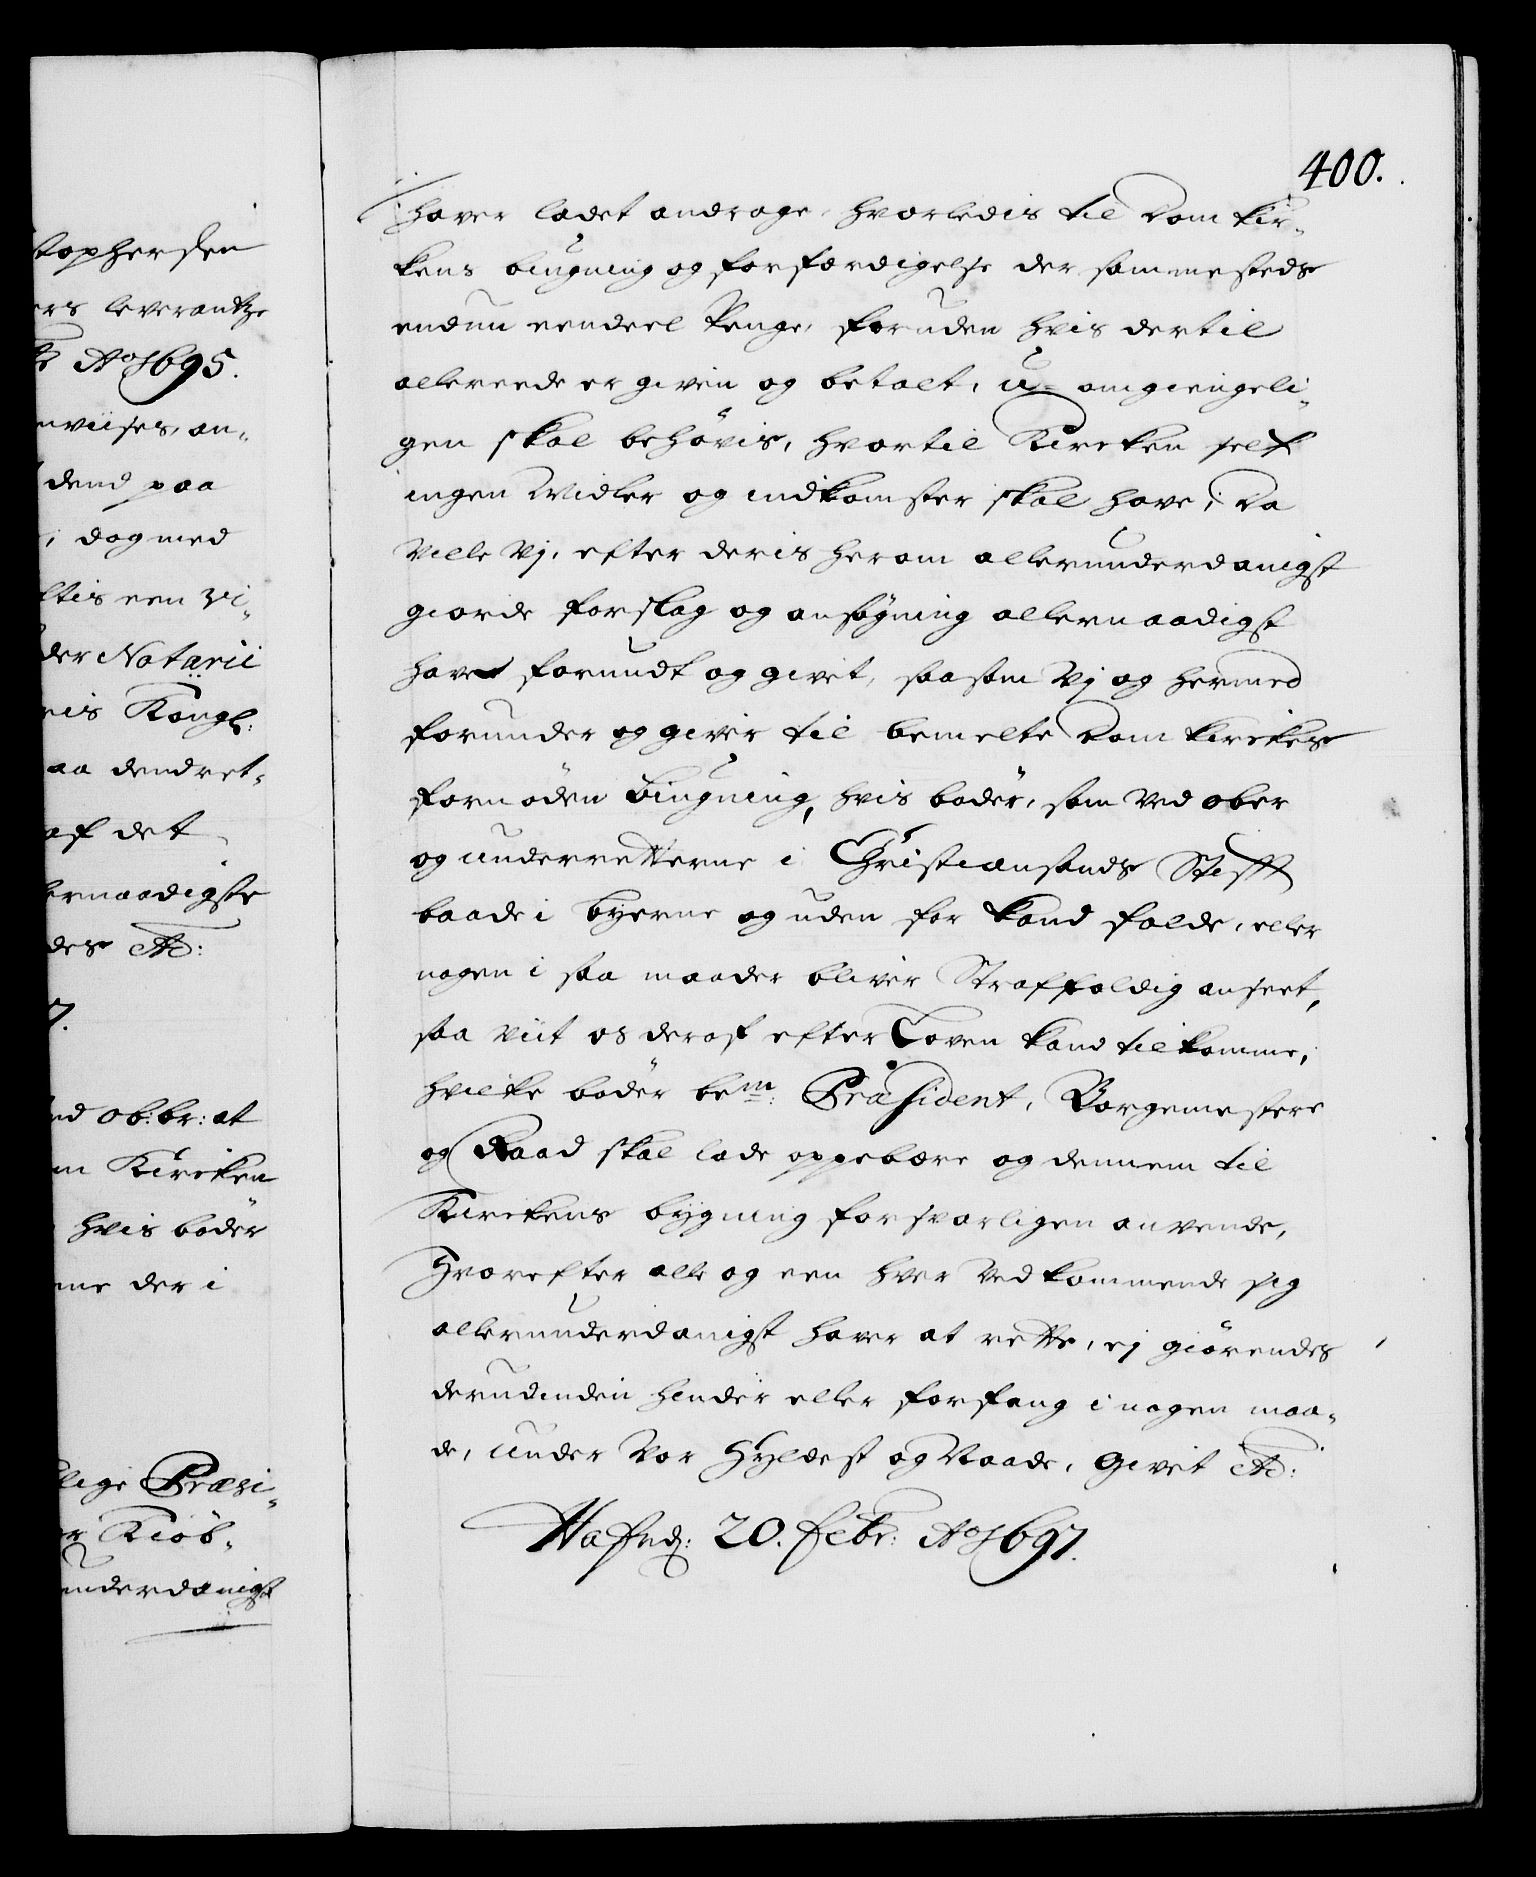 400.
haver ladet andrage, hvorledis til Dom kir-
kens bingning og forferdigelse der sammesteds
endnu eendeel Penge, foruden hvis dertil
allereede er given og betalt, u-omgiengeli-
gen skal behövis, hvortil Kircken self
ingen Midler og indkomster skal have; Da
ville Vj, efter deris herom allerunderdanigst
giorde forslag og ansøgning allernaadigst
havet forundt og givet, saasom Vj og hermed
forunder og giver til bemelte Dom kirckes
fornøden bingning, hvis bøder, som ved ober
og underretterne i Christiansands Stifft
baade i byerne og uden for kand falde, eller
nogen i saa maader bliver Straffaldig anseet,
saa viit os deraf efter Loven kand tilkomme,
hvilke bøder bem: Præsident, Borgemestere
og Raad skal lade oppebære og dennem til
Kirckens bygning forsvarligen anvende,
Hvorefter alle og een hver vedkommende sig
allerunderdanigst haver at rette, ej giörendes
derudinden hinder eller forfang i nogen maa-
de, under Vor Hyldest og Naade, Givet Ad:
Hafnd: 20. Febr: Ao 1697.
stophersen
ers leverantze
Ao 1695.
nviises, an-
dend paa
; dog med
ltis een Vi-
der Notarii
ris Kongl:
aa dend ret-
af det
lernaadigste
des Ad:
7.
nd ob: br: at
m Kircken
hvis bøder
rne der i
lige Præsi-
or Kiöb-
underdanigst